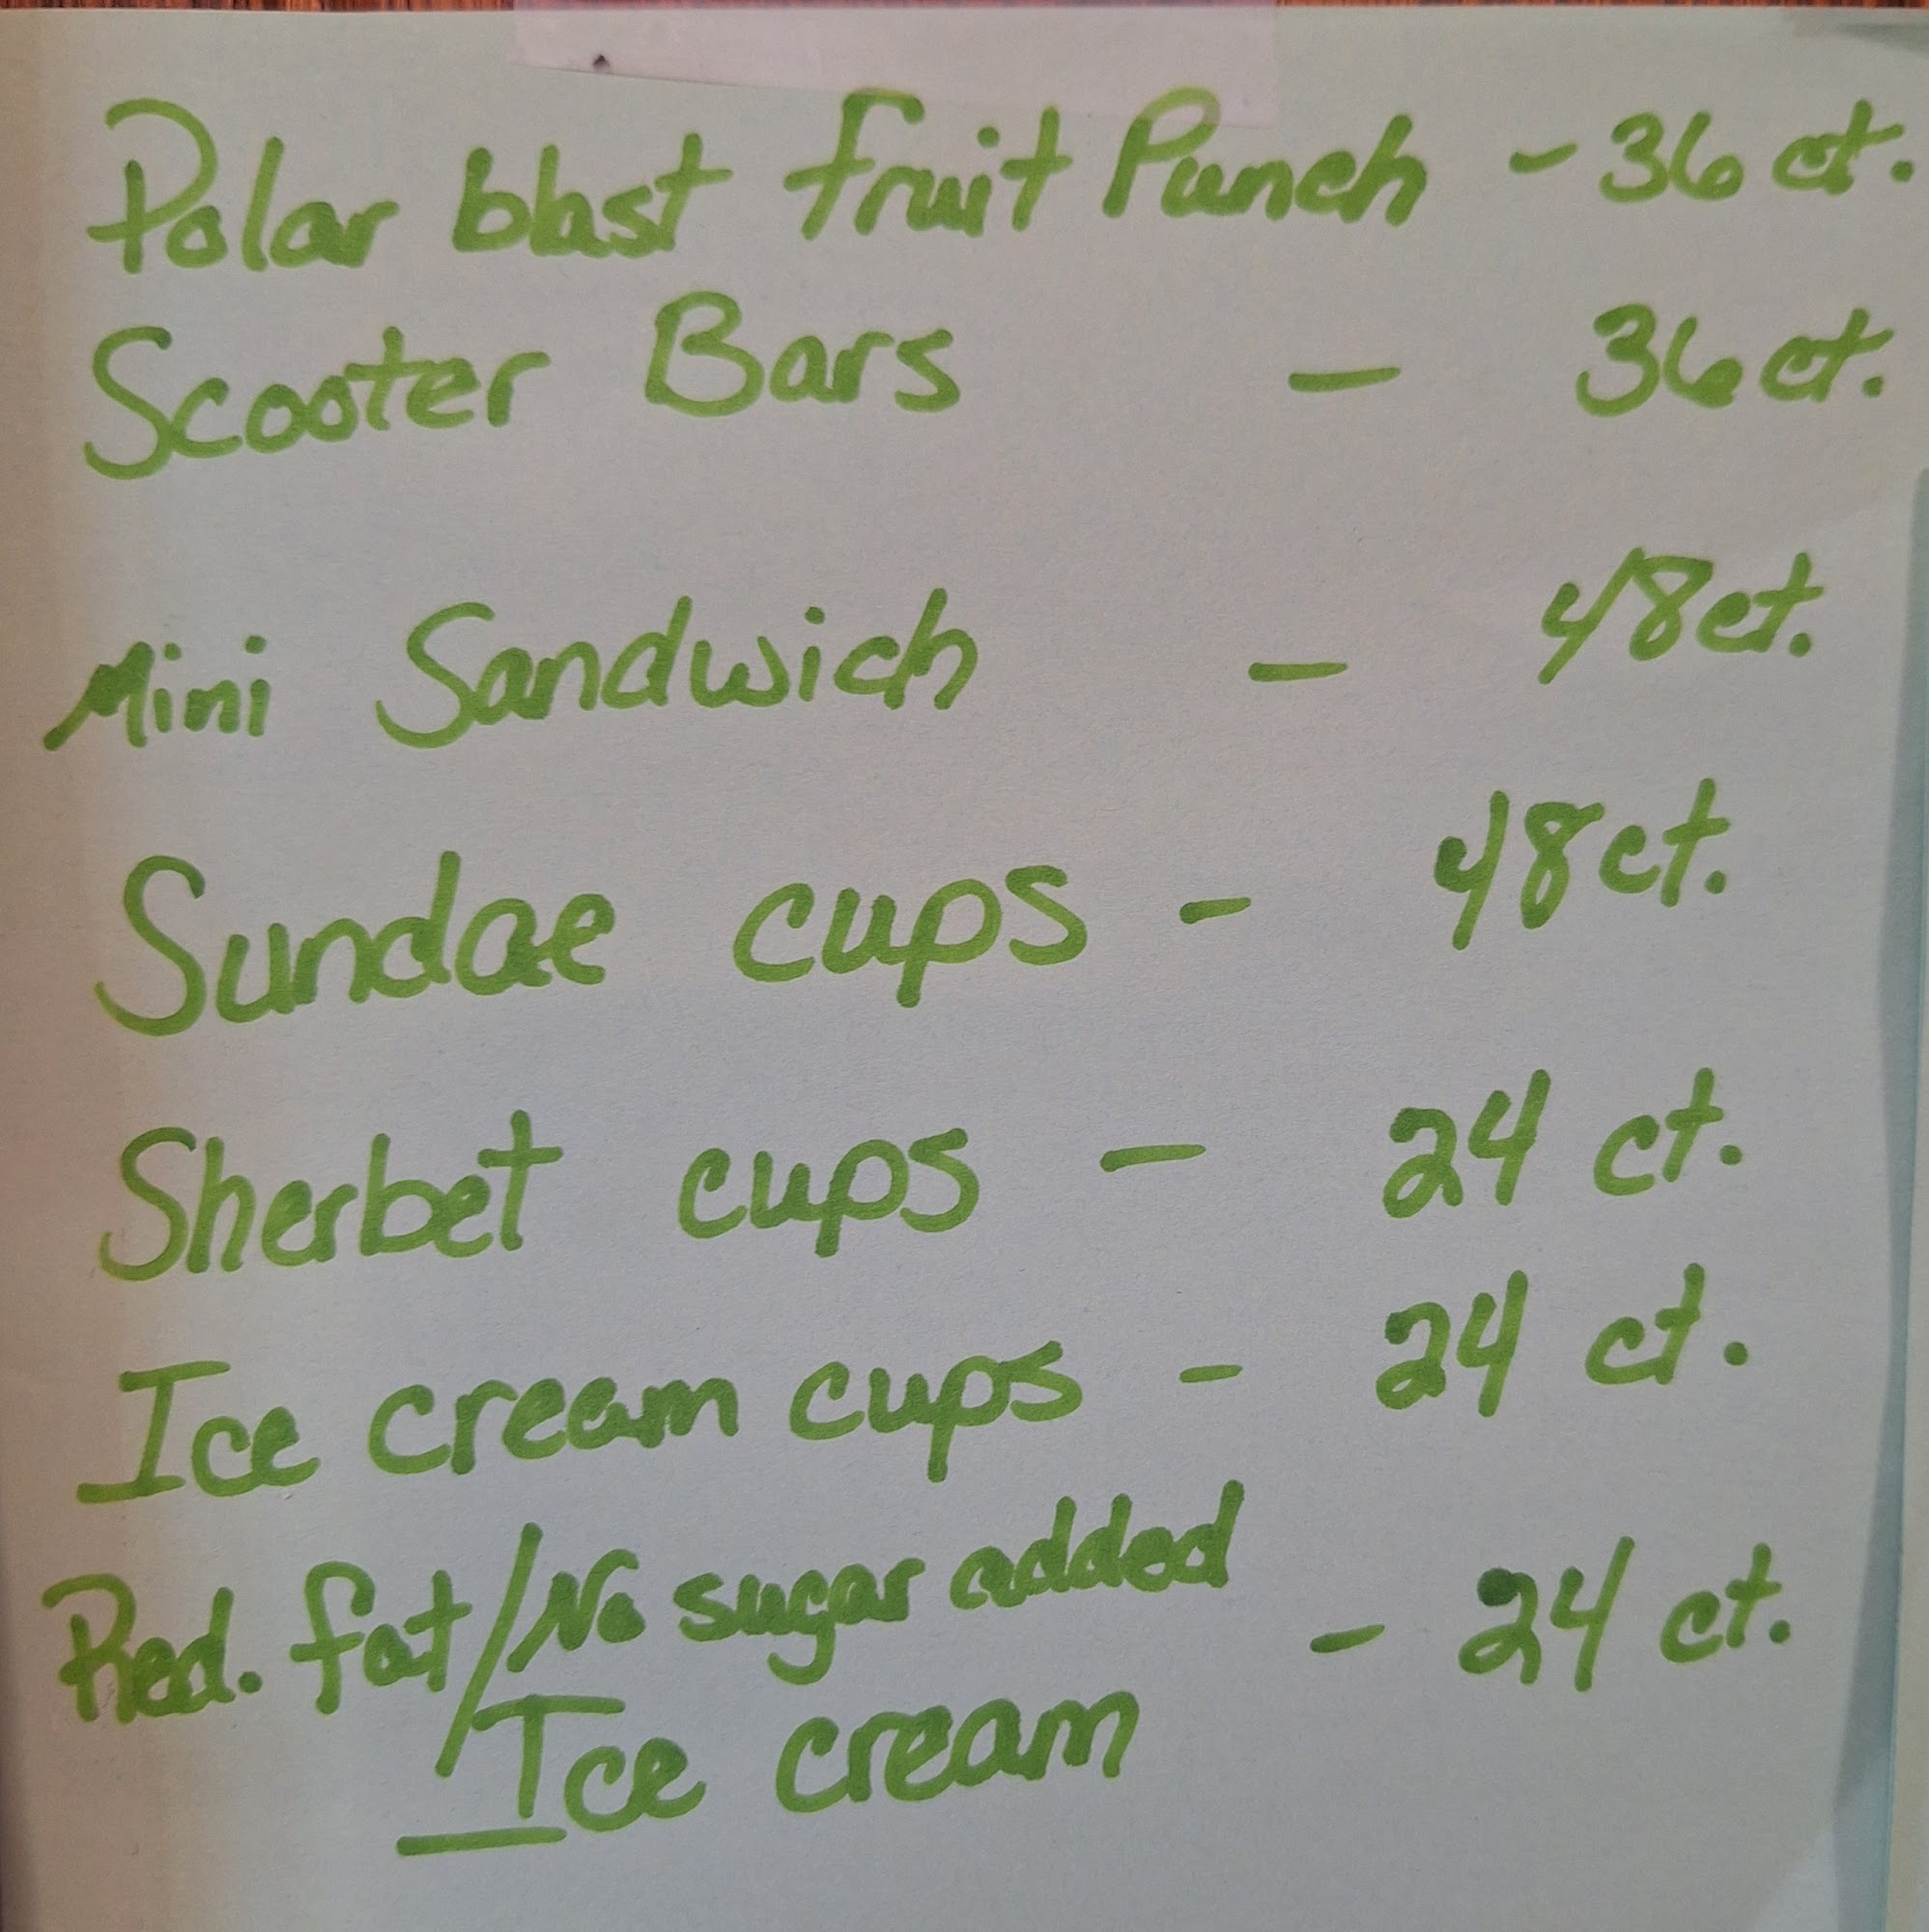 Polar blast fruit Punch - 36 ct.
Scooter Bars - 36 ct.
Mini Sandwich - 48 ct.
Sundae cups - 48 ct.
Sherbet cups - 24 ct.
Ice cream cups - 24 ct.
Red. fat/No sugar added - 24 ct.
Ice cream